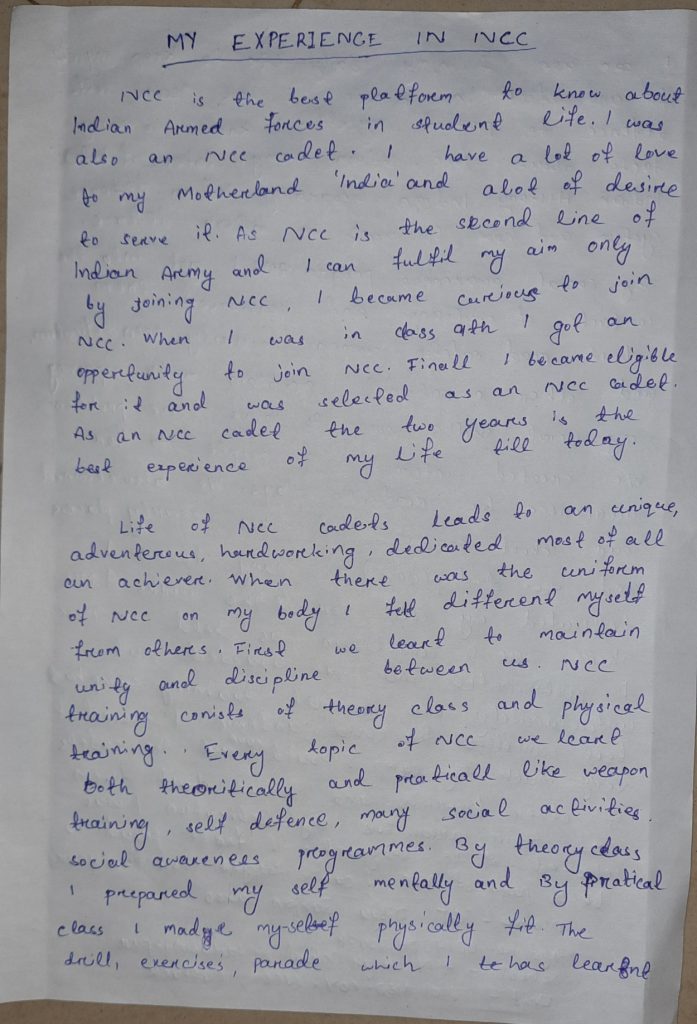 MY EXPERIENCE IN NCC
NCC is the best platform to know about
Indian Armed forces in student life. I was
also an NCC cadet. I have a lot of love
to my Motherland 'India' and alot of desire
to serve it. As NCC is the second line of
Indian Army and I can fulfil my aim only
by joining NCC, I became curious to join
NCC. When I was in class 9th I got an
opportunity to join NCC. Finall I became eligible
for it and was selected as an NCC cadet.
As an NCC cadet the two years is the
best experience of my life till today.
Life of NCC cadets leads to an unique,
adventerous, hardworking, dedicated most of all
an achiever. When there was the uniform
of NCC on my body I felt different myself
from others. First we leart to maintain
unity and discipline between us. NCC
training conists of theory class and physical
training. . Every topic of NCC we leart
both theoritically and praticall like weapon
training, self defence, many social activities,
social awareness programmes. By theory class
I prepared my self mentally and By pratical
class I made my-self physically fit. The
drill, exercises, parade which I has learnt